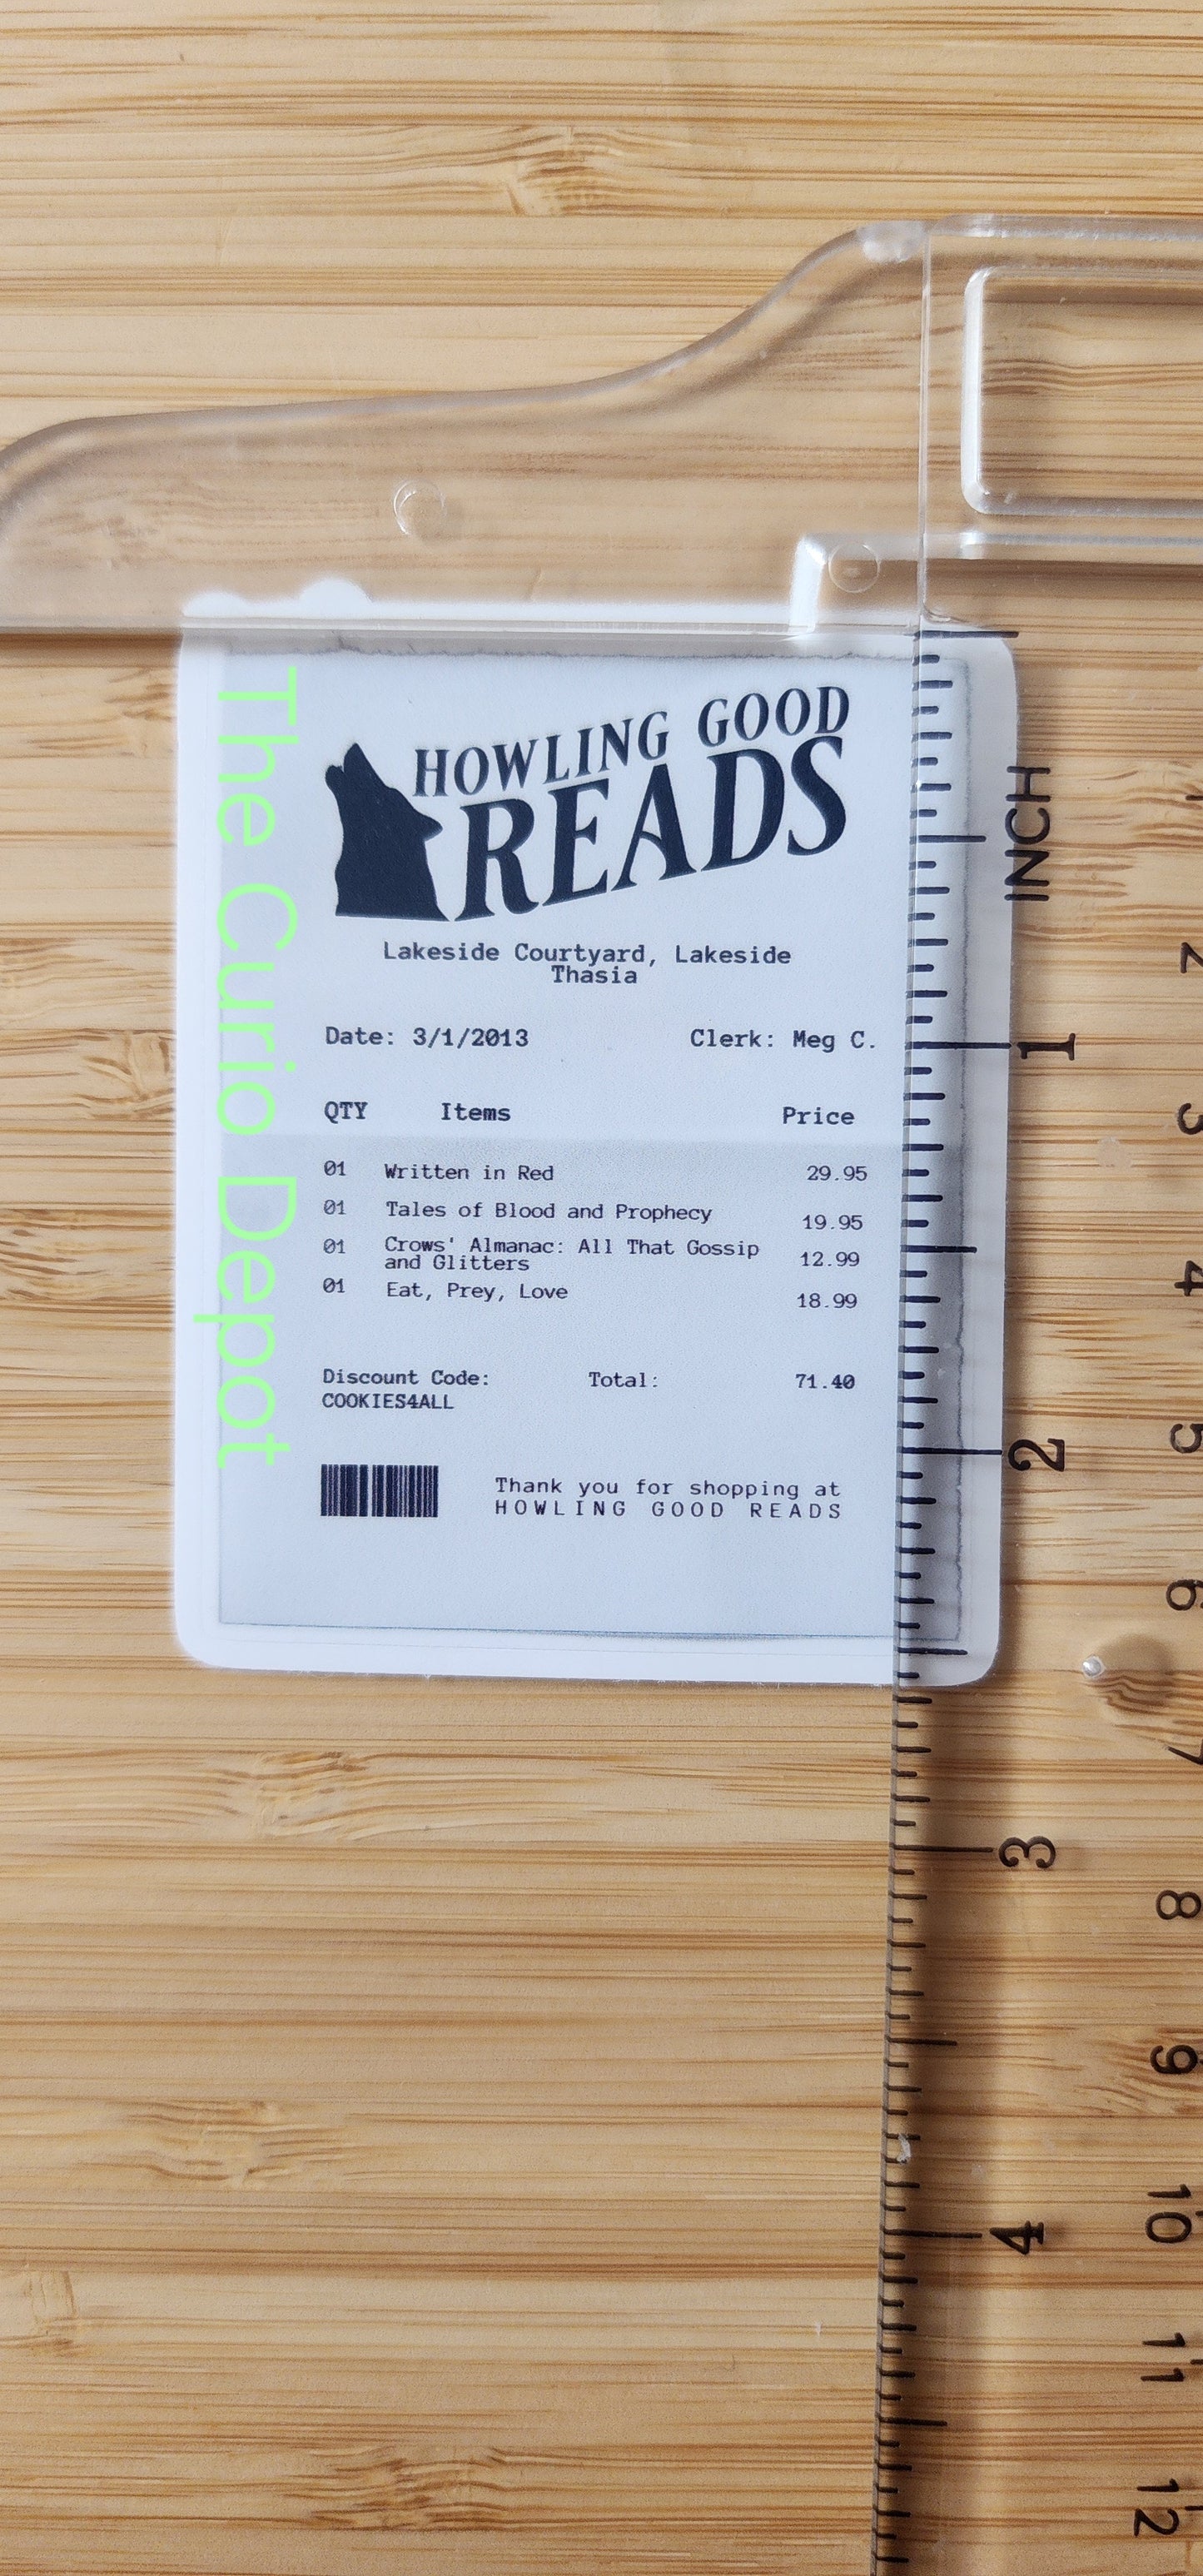 HOWLING GOOD
READS
Lakeside Courtyard, Lakeside
Thasia
Date: 3/1/2013 Clerk: Meg C.
QTY Items Price
01 Written in Red 29.95
01 Tales of Blood and Prophecy 19.95
01 Crows' Almanac: All That Gossip
and Glitters 12.99
01 Eat, Prey, Love 18.99
Discount Code: Total: 71.40
COOKIES4ALL
Thank you for shopping at
HOWLING GOOD READS
The Curio Depot
INCH
1
2
3
4
1
2
3
4
5
6
7
8
9
10
11
12